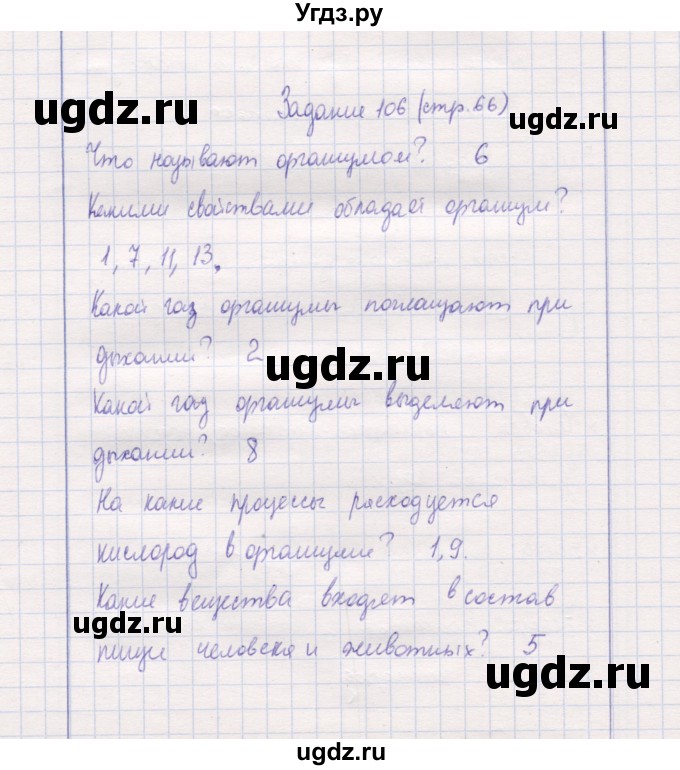 Угдз.ру
ugdz.ru
Задание 106 (стр. 66)
ugdz.ru
Что называют организмом? 6
Какими свойствами обладает организм?
1, 7, 11, 13.
Какой газ организмы поглощают при
дыхании? 2
ugdz.ru
Какой газ организмы выделяют при
дыхании? 8
На какие процессы расходуется
кислород в организме? 1,9.
Какие вещества входят в состав
ugdz.ru
пищи человека и животных? 5
ugdz.ru
ugdz.ru